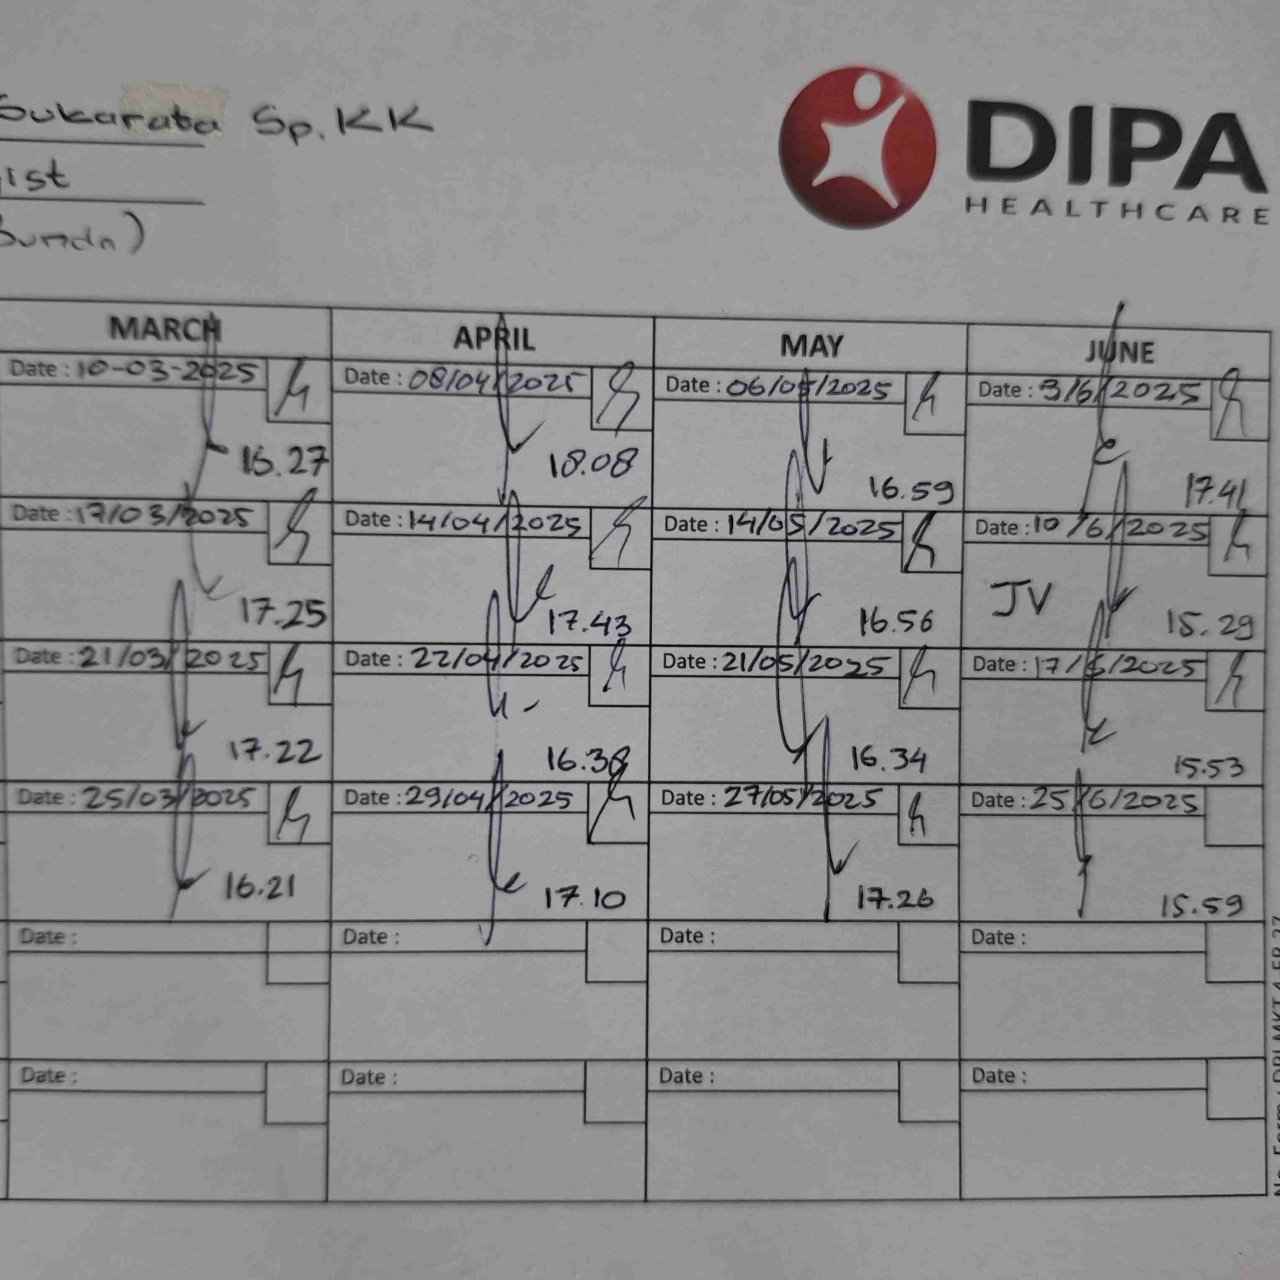 Sukarata Sp.KK
ist
DIPA
HEALTHCARE
MARCH APRIL MAY JUNE
Date : 10-03-2025 Date : 08/04/2025 Date : 06/05/2025 Date : 3/6/2025
18.08 16.59 17.41
Date : 17/03/2025 Date : 14/04/2025 Date : 14/05/2025 Date : 10/6/2025
JV
17.25 17.43 16.56 15.29
Date : 21/03/2025 Date : 22/04/2025 Date : 21/05/2025 Date : 17/6/2025
17.22 16.38 16.34 15.53
Date : 25/03/2025 Date : 29/04/2025 Date : 27/05/2025 Date : 25/6/2025
16.21 17.10 17.26 15.59
Date : Date : Date : Date :
Date : Date : Date : Date :